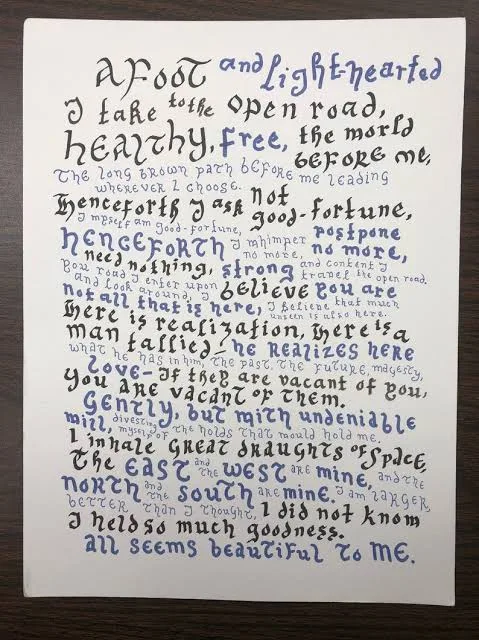 AFOOT and light-hearted
I take to the open road,
HEALTHY, free, the world
BEFORE ME,
THE LONG BROWN PATH BEFORE ME LEADING
WHEREVER I CHOOSE.
Henceforth I ask not
good-fortune,
I myself am good-fortune,
HENCEFORTH I whimper no more, postpone no more,
need nothing, strong and content I travel the open road.
You road I enter upon and look around, I believe you are
not all that is here, I believe that much unseen is also here.
Here is realization, Here is a
man tallied! he REALIZES HERE
WHAT HE HAS IN HIM, THE PAST, THE FUTURE, MAJESTY,
LOVE- If they are vacant of you,
you are vacant of them.
GENTLY, but with undeniable
will, divesting myself of the holds that would hold me.
I inhale GREAT draughts of space,
the EAST and the WEST are mine, and the
NORTH and the SOUTH are mine. I am LARGER,
better than I thought, I did not know
I held so much goodness.
all seems beautiful to ME.